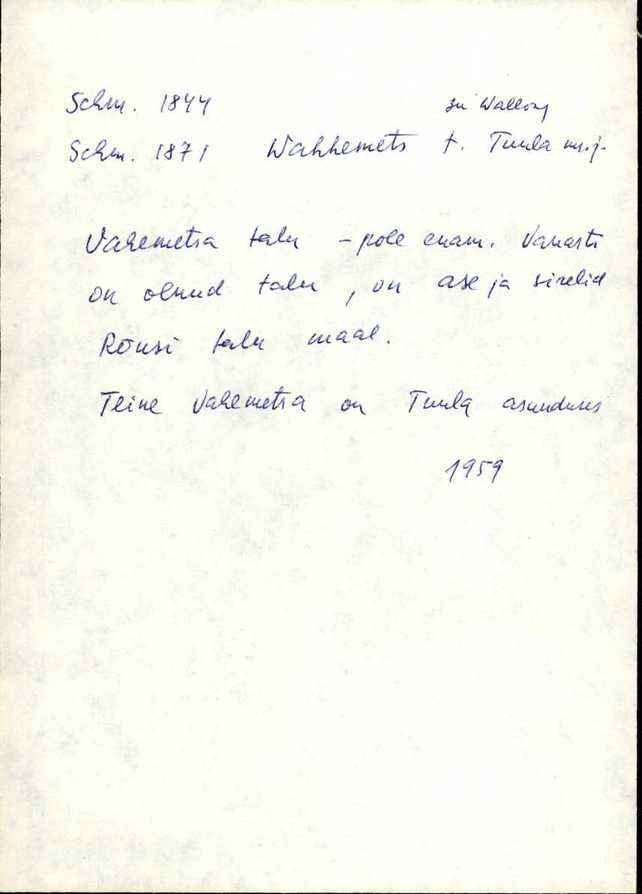 Schm. 1844 zu Wallong
Schm. 1871 Wahhemets t. Tuula m.j.
Vahemetsa talu – pole enam. Vanasti
on olnud talu, on ase ja sirelid
Rõusi talu maal.
Teine Vahemetsa on Tuula asunduses
1959